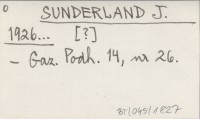 SUNDERLAND J.
1926... [?]
- Gaz. Podh. 14, nr 26.
BT/045/1827